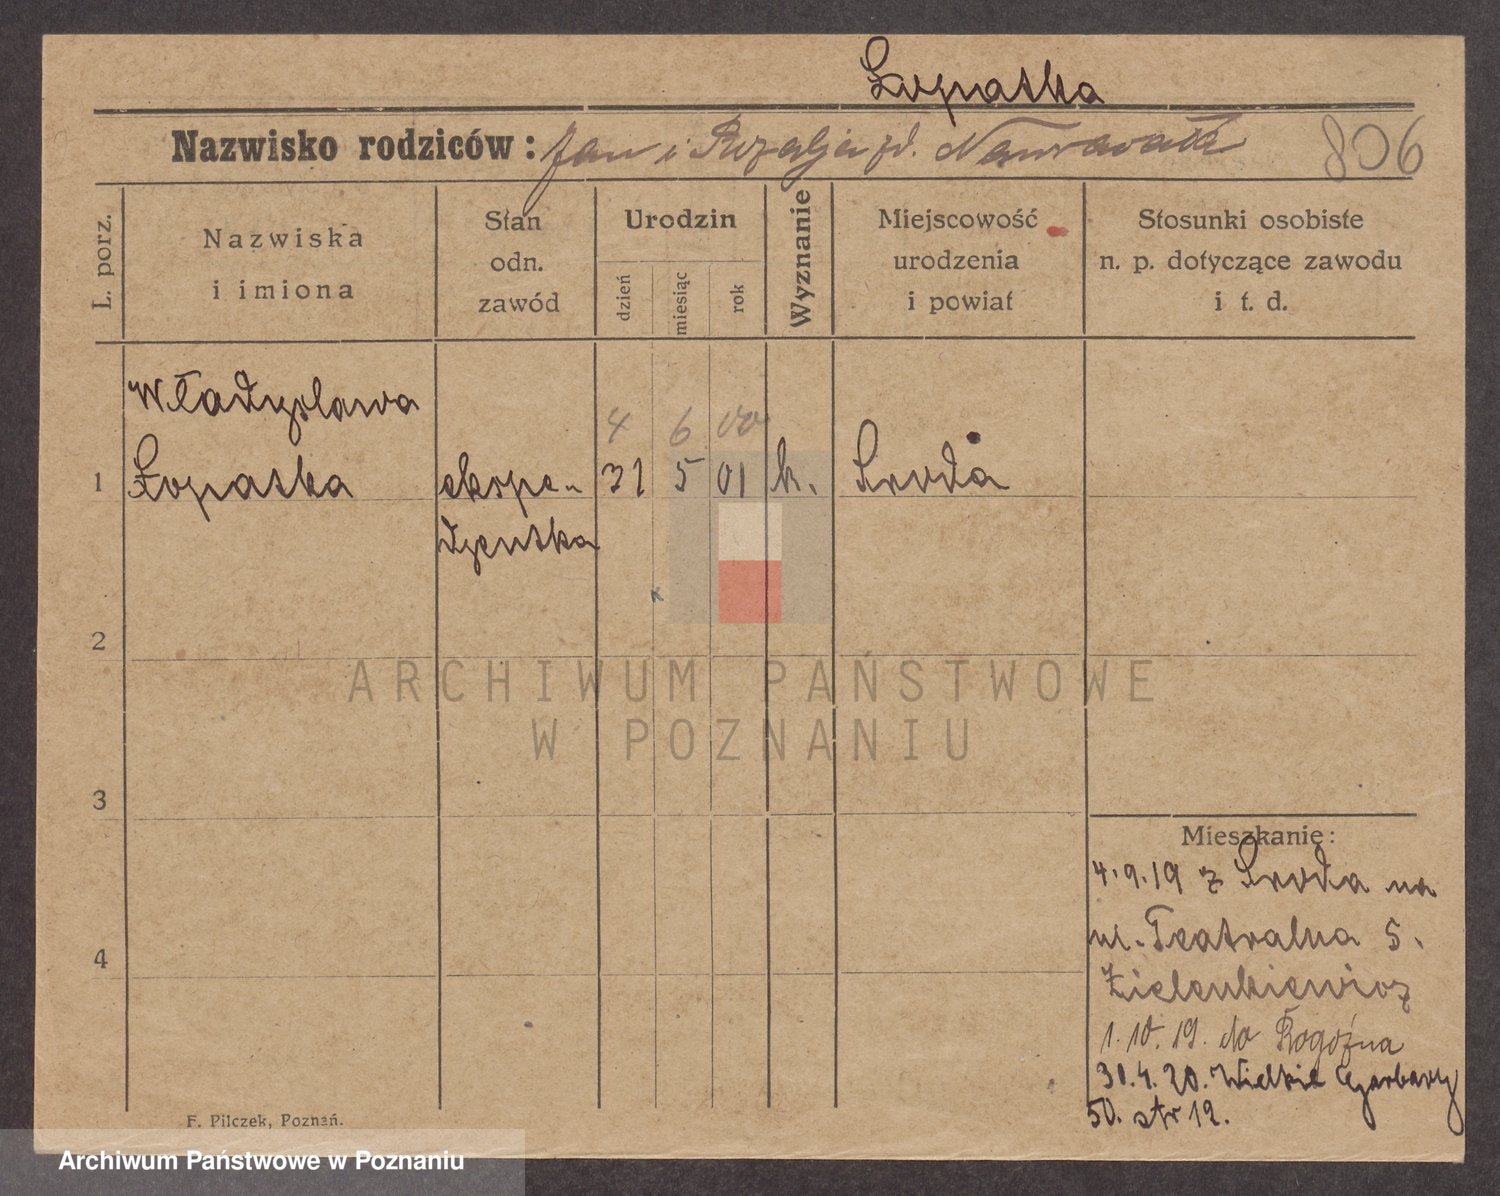 Łopatka
Nazwisko rodziców: Jan i Rozalja zd. Nawrocka
806
L. porz.
Nazwiska
i imiona
Stan
odn.
zawód
Urodzin
dzień
miesiąc
rok
Wyznanie
Miejscowość
urodzenia
i powiat
Stosunki osobiste
n. p. dotyczące zawodu
i t. d.
Władysława
4 6 00
1 Łopatka ekspe- 31 5 01 k. Środa
djentka
2
ARCHIWUM PAŃSTWOWE
W POZNANIU
3
Mieszkanie:
4.9.19 z Środa na
ul. Teatralna 5.
Zielenkiewicz
4
1.10.19. do Rogoźna
30.4.20. Wielkie Garbary
50. str 12.
F. Pilczek, Poznań.
Archiwum Państwowe w Poznaniu